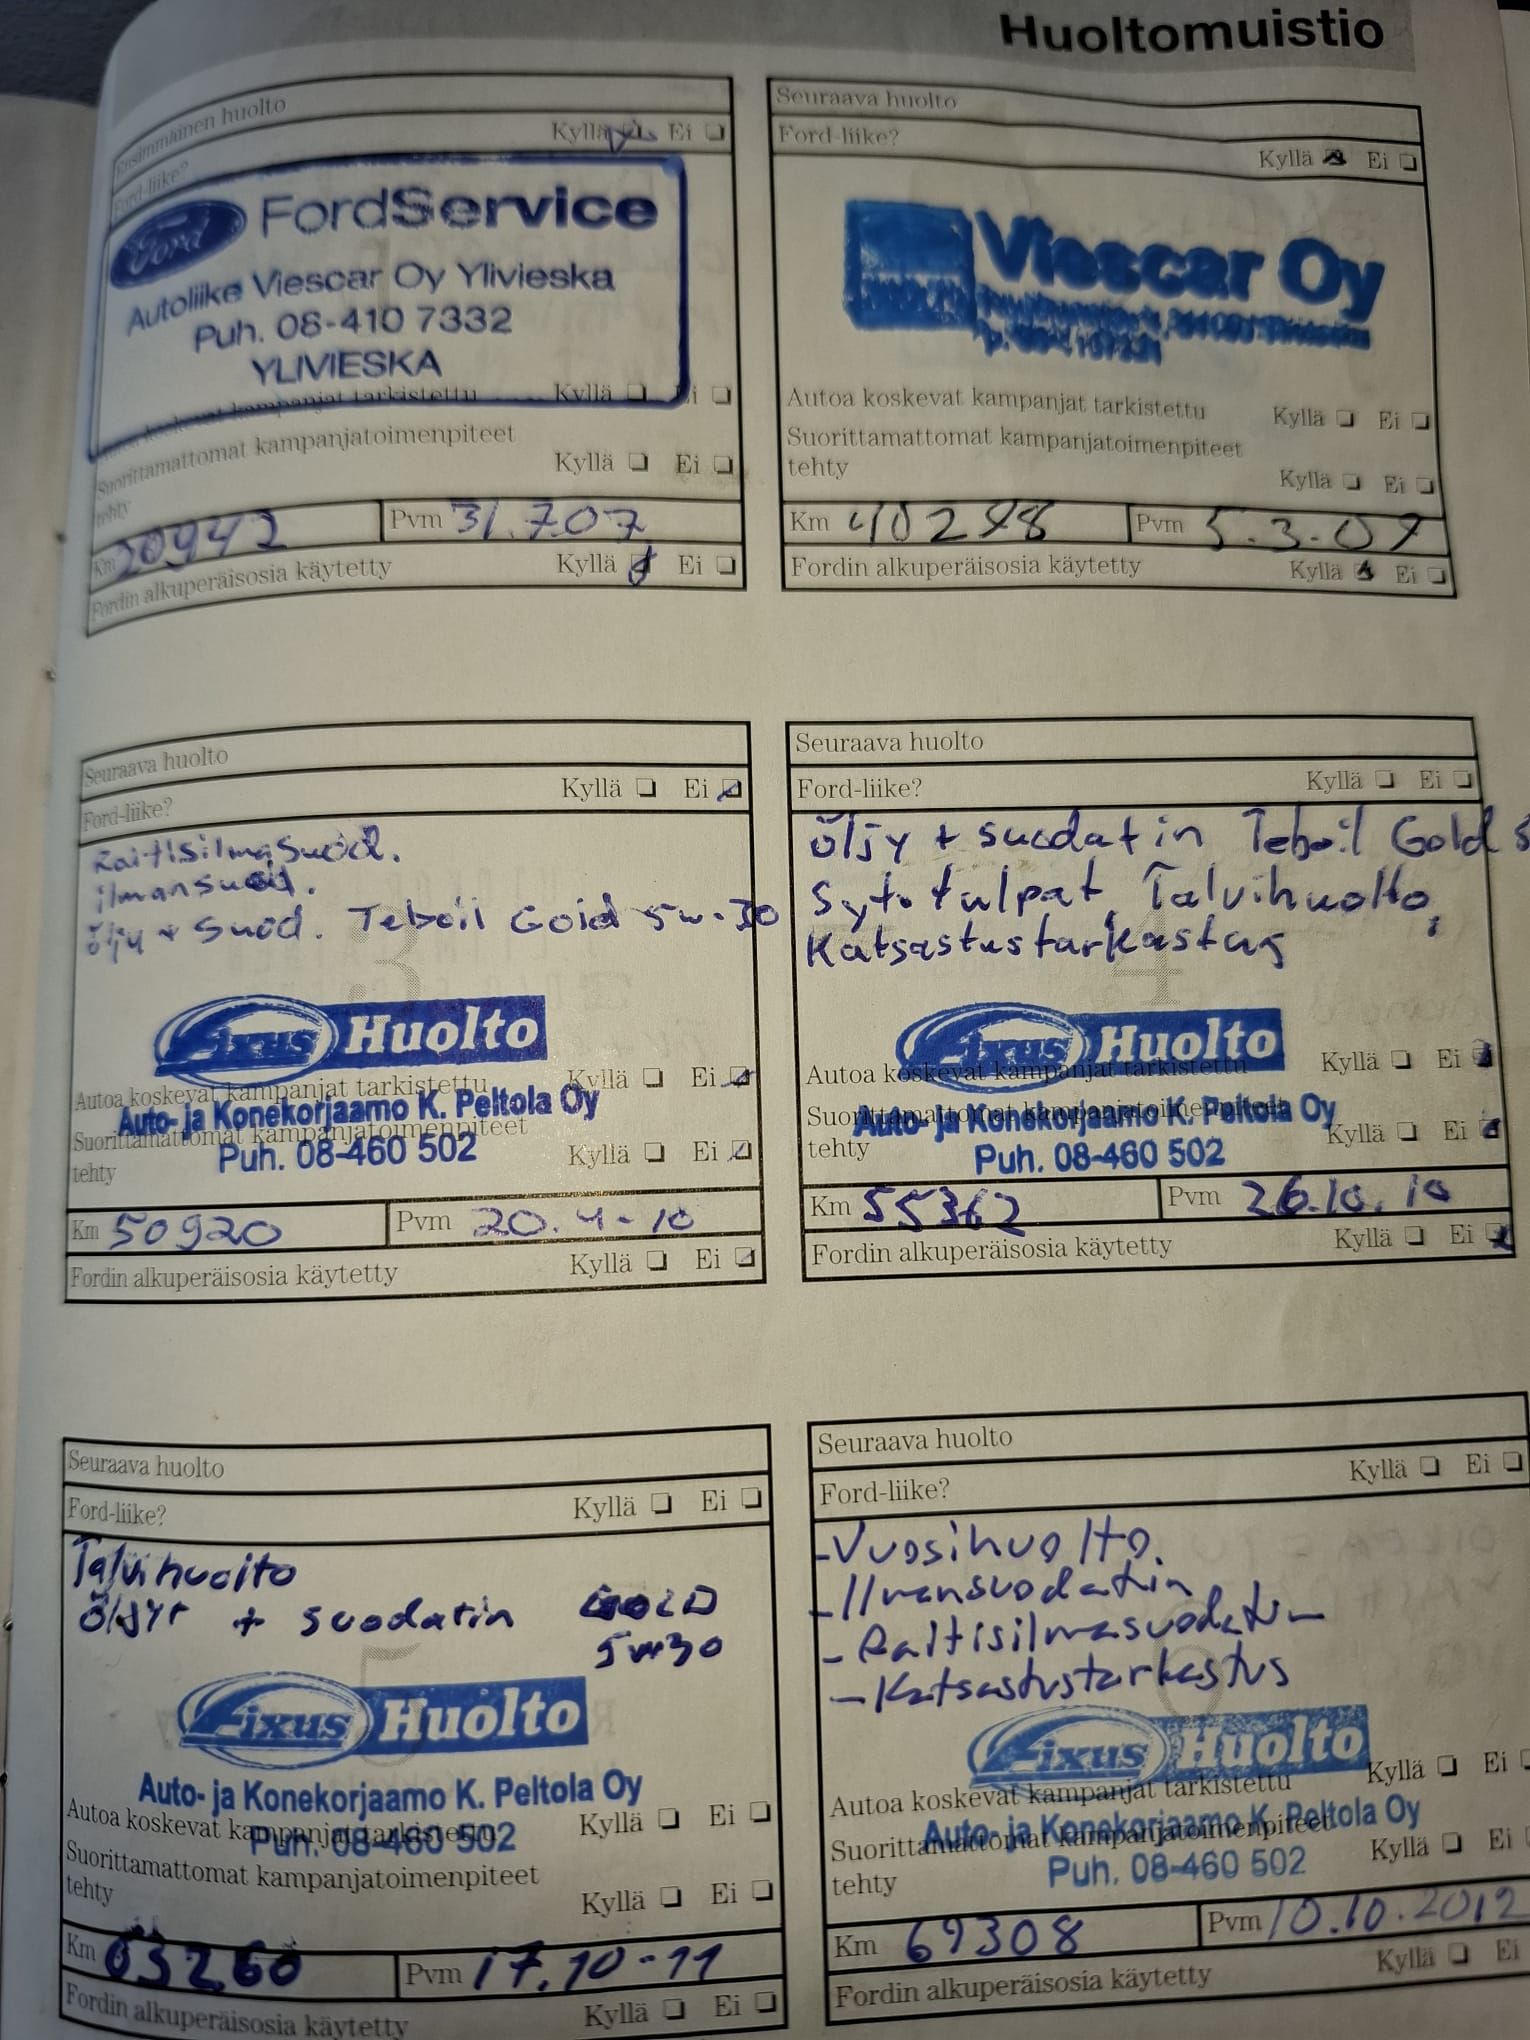 Huoltomuistio
Ensimmäinen huolto
Ford-liike?
Kyllä Ei
Ford FordService
Autoliike Viescar Oy Ylivieska
Puh. 08-410 7332
YLIVIESKA
Autoa koskevat kampanjat tarkistettu Kyllä Ei
Suorittamattomat kampanjatoimenpiteet
tehty Kyllä Ei
Km 20942 Pvm 31.7.07
Fordin alkuperäisosia käytetty Kyllä Ei
Seuraava huolto
Ford-liike?
Kyllä Ei
Viescar Oy
Autoa koskevat kampanjat tarkistettu Kyllä Ei
Suorittamattomat kampanjatoimenpiteet
tehty Kyllä Ei
Km Pvm
Fordin alkuperäisosia käytetty Kyllä Ei
Seuraava huolto
Ford-liike? Kyllä Ei
Raitisilmasuod.
ilmansuod.
öljy + suod. Teboil Gold 5w-30
Fixus Huolto
Autoa koskevat kampanjat tarkistettu Kyllä Ei
Auto- ja Konekorjaamo K. Peltola Oy
Suorittamattomat kampanjatoimenpiteet
tehty Kyllä Ei
Puh. 08-460 502
Km 50920 Pvm 20.4-10
Fordin alkuperäisosia käytetty Kyllä Ei
Seuraava huolto
Ford-liike? Kyllä Ei
öljy + suodatin Teboil Gold 5
Syt. tulpat, Talvihuolto,
Katsastustarkastus
Fixus Huolto
Autoa koskevat kampanjat tarkistettu Kyllä Ei
Suorittamattomat kampanjatoimenpiteet
Auto- ja Konekorjaamo K. Peltola Oy
tehty Kyllä Ei
Puh. 08-460 502
Km 55362 Pvm 26.10.10
Fordin alkuperäisosia käytetty Kyllä Ei
Seuraava huolto
Ford-liike? Kyllä Ei
Talvihuolto
+ suodatin GOLD
5w30
Fixus Huolto
Auto- ja Konekorjaamo K. Peltola Oy
Autoa koskevat kampanjat tarkistettu Kyllä Ei
Puh. 08-460 502
Suorittamattomat kampanjatoimenpiteet
tehty Kyllä Ei
Km 63260 Pvm 17.10-11
Fordin alkuperäisosia käytetty Kyllä Ei
Seuraava huolto
Ford-liike? Kyllä Ei
-Vuosihuolto.
-Ilmansuodatin
-Raitisilmasuodatin
-Katsastustarkastus
Fixus Huolto
Autoa koskevat kampanjat tarkistettu Kyllä Ei
Auto- ja Konekorjaamo K. Peltola Oy
Suorittamattomat kampanjatoimenpiteet
tehty Kyllä Ei
Puh. 08-460 502
Km 69308 Pvm 10.10.2012
Fordin alkuperäisosia käytetty Kyllä Ei